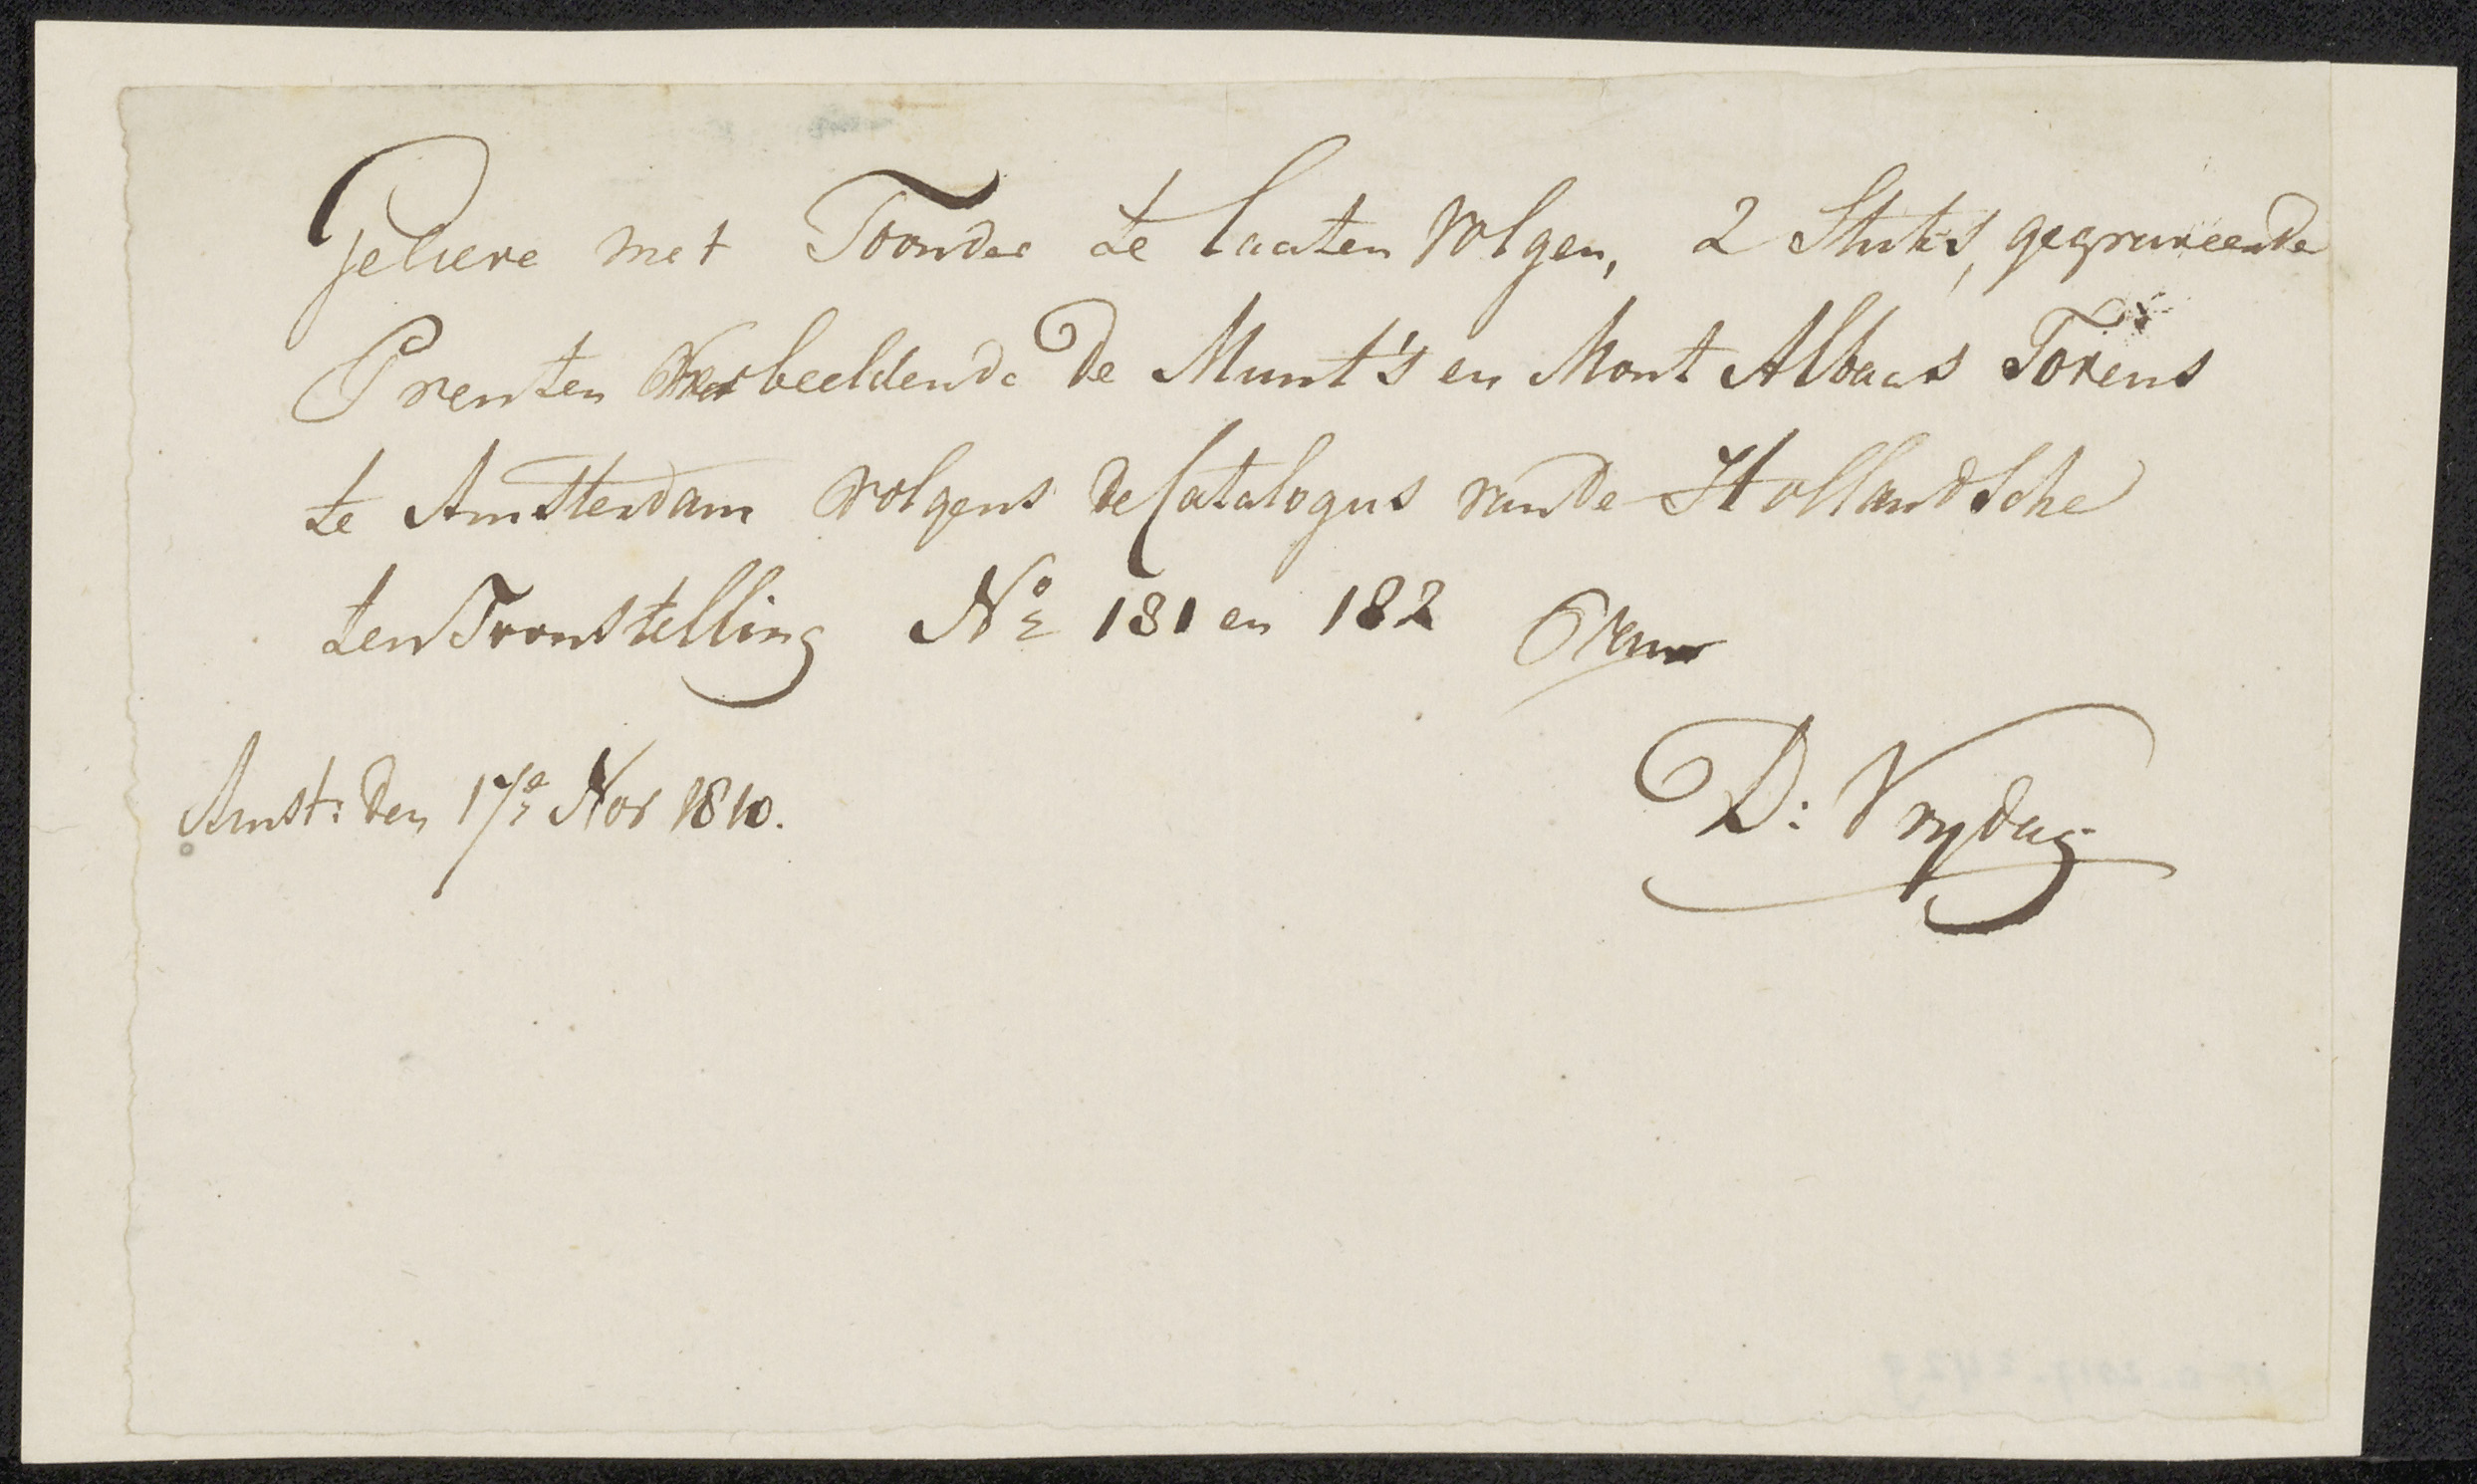 Geliere met Toonder te laaten Volgen, 2 Stuks, gegraveerde
Prenten Verbeeldende De Munt's en Mont Albaas Torens
te Amsterdam volgens de Catalogus van de Hollandsche
ten Toonstelling Nº 181 en 182
Amst: Den 17º Nov 1810.
D: Vrydag